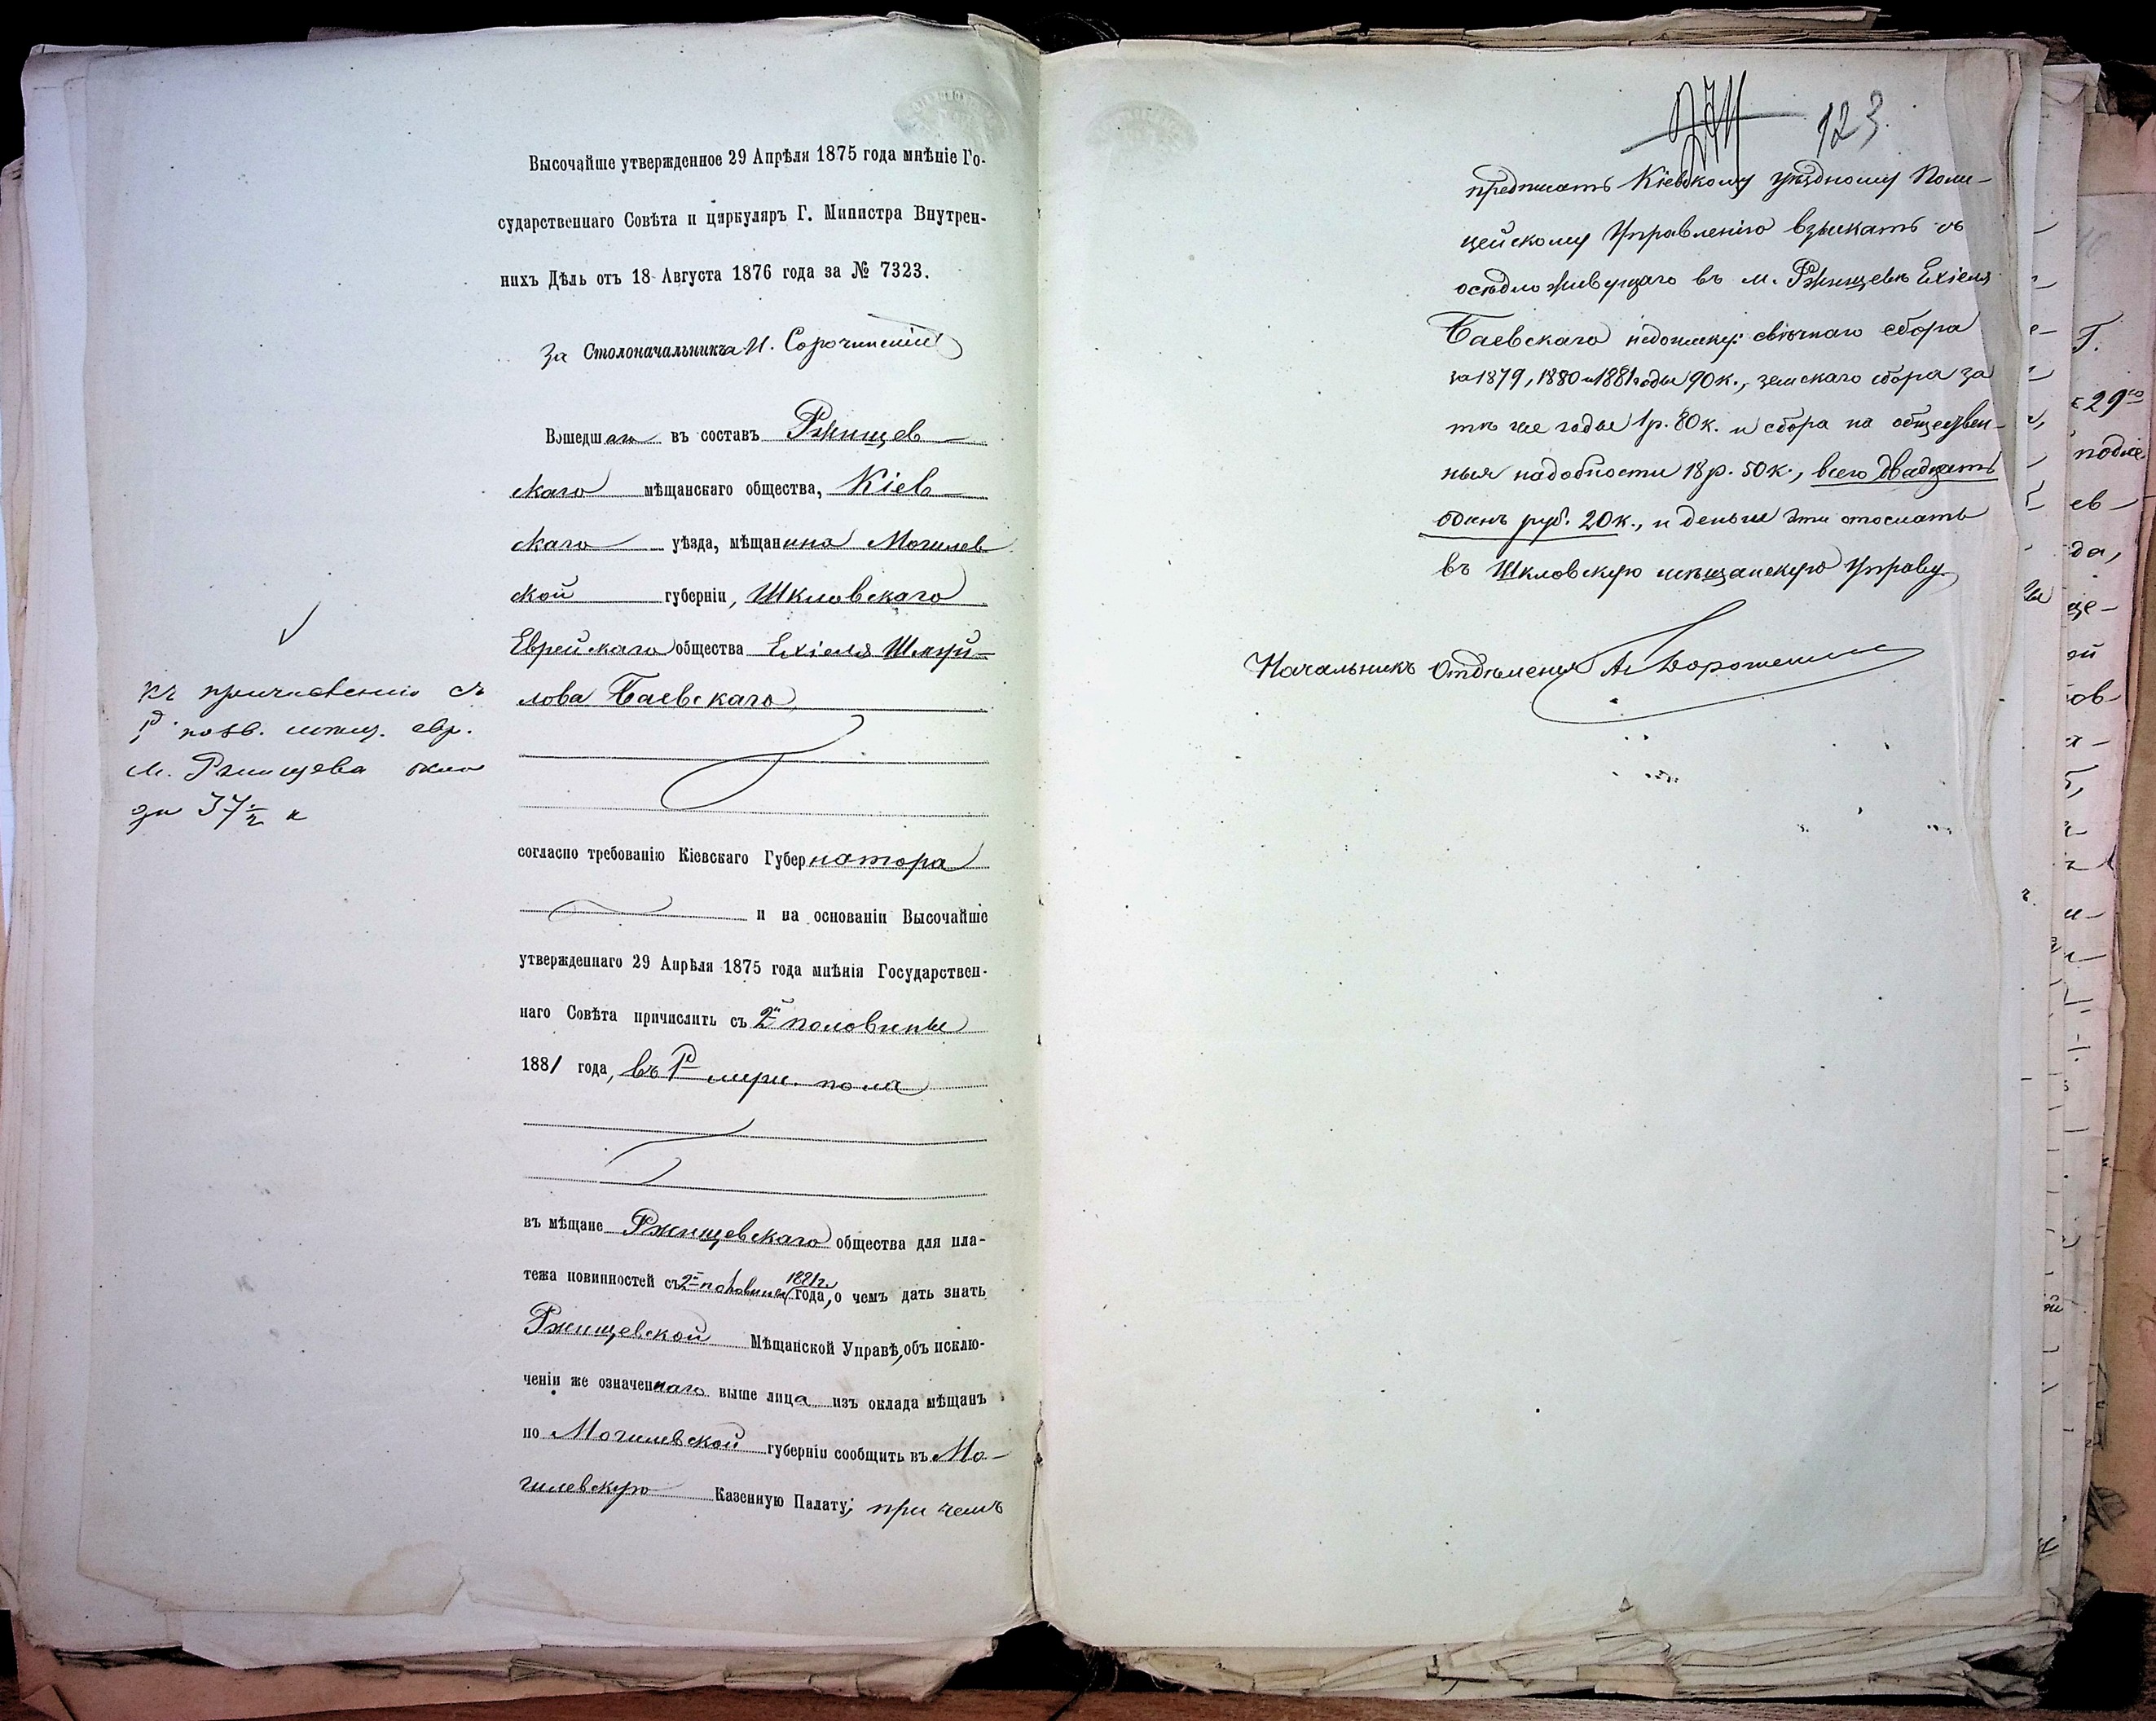 Высочайше утвержденное 29 Апрѣля 1875 года мнѣніе Го-
сударственнаго Совѣта и циркуляръ Г. Министра Внутрен-
нихъ Дѣлъ отъ 18 Августа 1876 года за № 7323.
За Столоначальника И. Сорочинскій
Вошедшаго въ составъ Ржищев-
скаго мѣщанскаго общества, Кіев-
скаго уѣзда, мѣщанина Могилев
ской губерніи, Шкловскаго
Еврейскаго общества Ехіеля Шмуй-
лова Баевскаго,
къ причисленію съ
м. Ржищева
за 37 1/2 к
согласно требованію Кіевскаго Губернатора
и на основаніи Высочайше
утвержденнаго 29 Апрѣля 1875 года мнѣнія Государствен-
наго Совѣта причислить съ 2й половины
1881 года, въ 1й муж. пола
въ мѣщане Ржищевскаго общества для пла-
тежа повинностей съ 2й половины 1881г. года, о чемъ дать знать
Ржищевской Мѣщанской Управѣ, объ исклю-
ченіи же означеннаго выше лица изъ оклада мѣщанъ
по Могилевской губерніи сообщить въ Мо-
гилевскую Казенную Палату; при чемъ
123
предписать Кіевскому уѣздному Поли-
цейскому Управленію взыскать съ
осѣдло живущаго въ м. Ржищевѣ Ехіеля
Баевскаго недоимку: свѣчнаго сбора
за 1879, 1880 и 1881 годы 90 к., земскаго сбора за
тѣ же годы 1 р. 80 к. и сбора на обществен-
ныя надобности 18 р. 50 к., всего двадцать
одинъ руб. 20 к., и деньги эти отослать
въ Шкловскую мѣщанскую Управу.
Начальникъ Отдѣленія А. Дорошенко